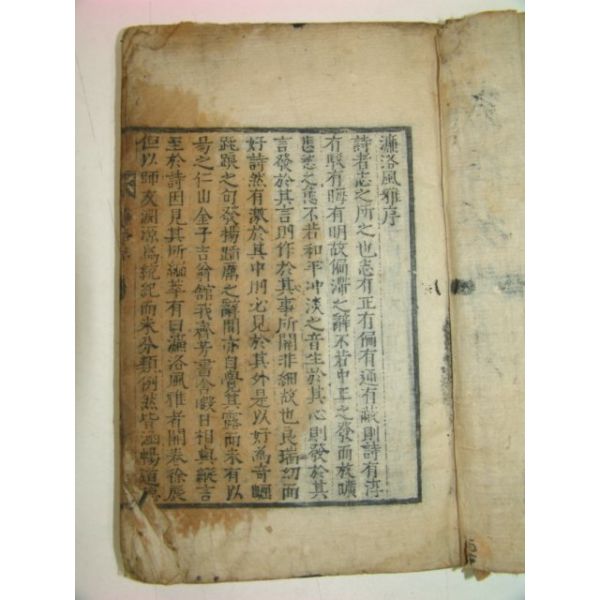 濂洛風雅序
詩者志之所之也志有正有偏有通有蔽則詩有淳
有駁有晦有明故偏滯之辭不若中正之發而放曠
悲愁之態不若和平冲淡之音生於其心則發於其
言發於其言則作於其事所關非細故也良瑞幼而
好詩然有激於其中則必見於其外是以好高奇
之句發揚蹈厲之辭間亦自覺其露而未有以
易之仁山金子吉翁館我齊芳書舍暇日相與縱言
至於詩因見其所編萃有曰濂洛風雅者開卷徐展
但以師友淵源爲統紀而未分類例然皆涵暢道